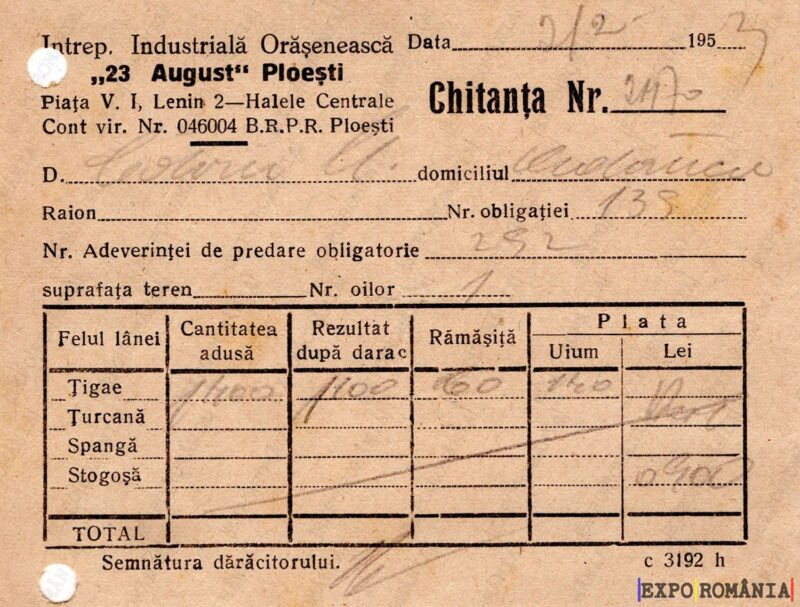 Intrep. Industrială Orăşenească Data 2/2 1953
„23 August“ Ploeşti
Piaţa V. I, Lenin 2—Halele Centrale
Chitanţa Nr.
Cont vir. Nr. 046004 B.R.P.R. Ploeşti
D. domiciliul
Raion Nr. obligaţiei 139
Nr. Adeverinţei de predare obligatorie 292
suprafaţa teren Nr. oilor 1
Felul lânei Cantitatea adusă Rezultat după darac Rămăşiţă Plata
Uium Lei
Ţigae 1400 1100 160 140
Ţurcană
Spangă
Stogoşă
TOTAL
Semnătura dărăcitorului.
c 3192 h
EXPO ROMÂNIA